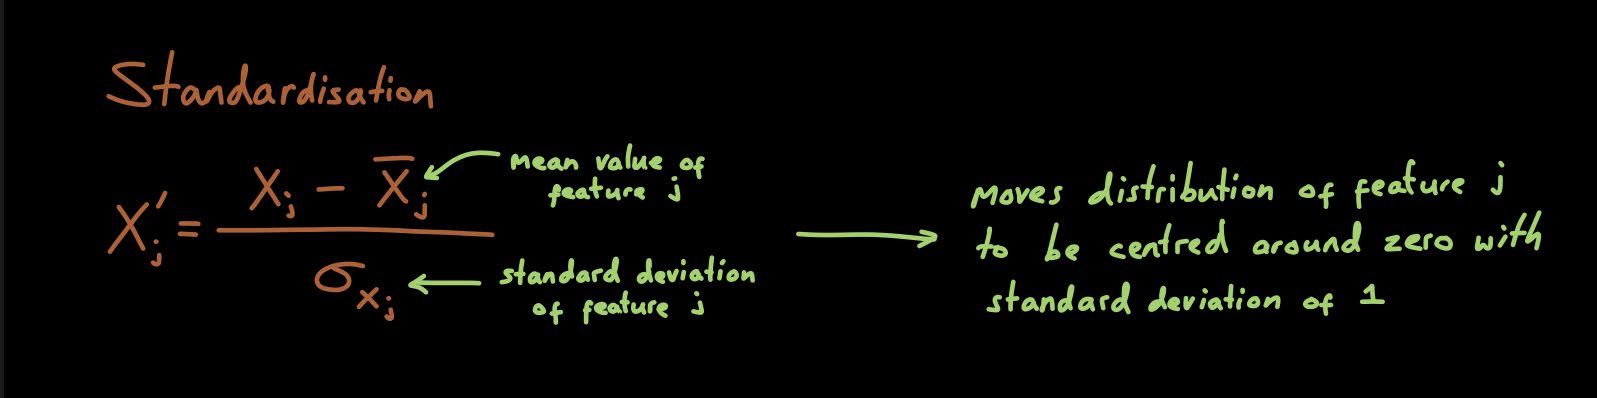 Standardisation
X'j = (Xj − X̄j) / σxj
mean value of
feature j
standard deviation
of feature j
moves distribution of feature j
to be centred around zero with
standard deviation of 1